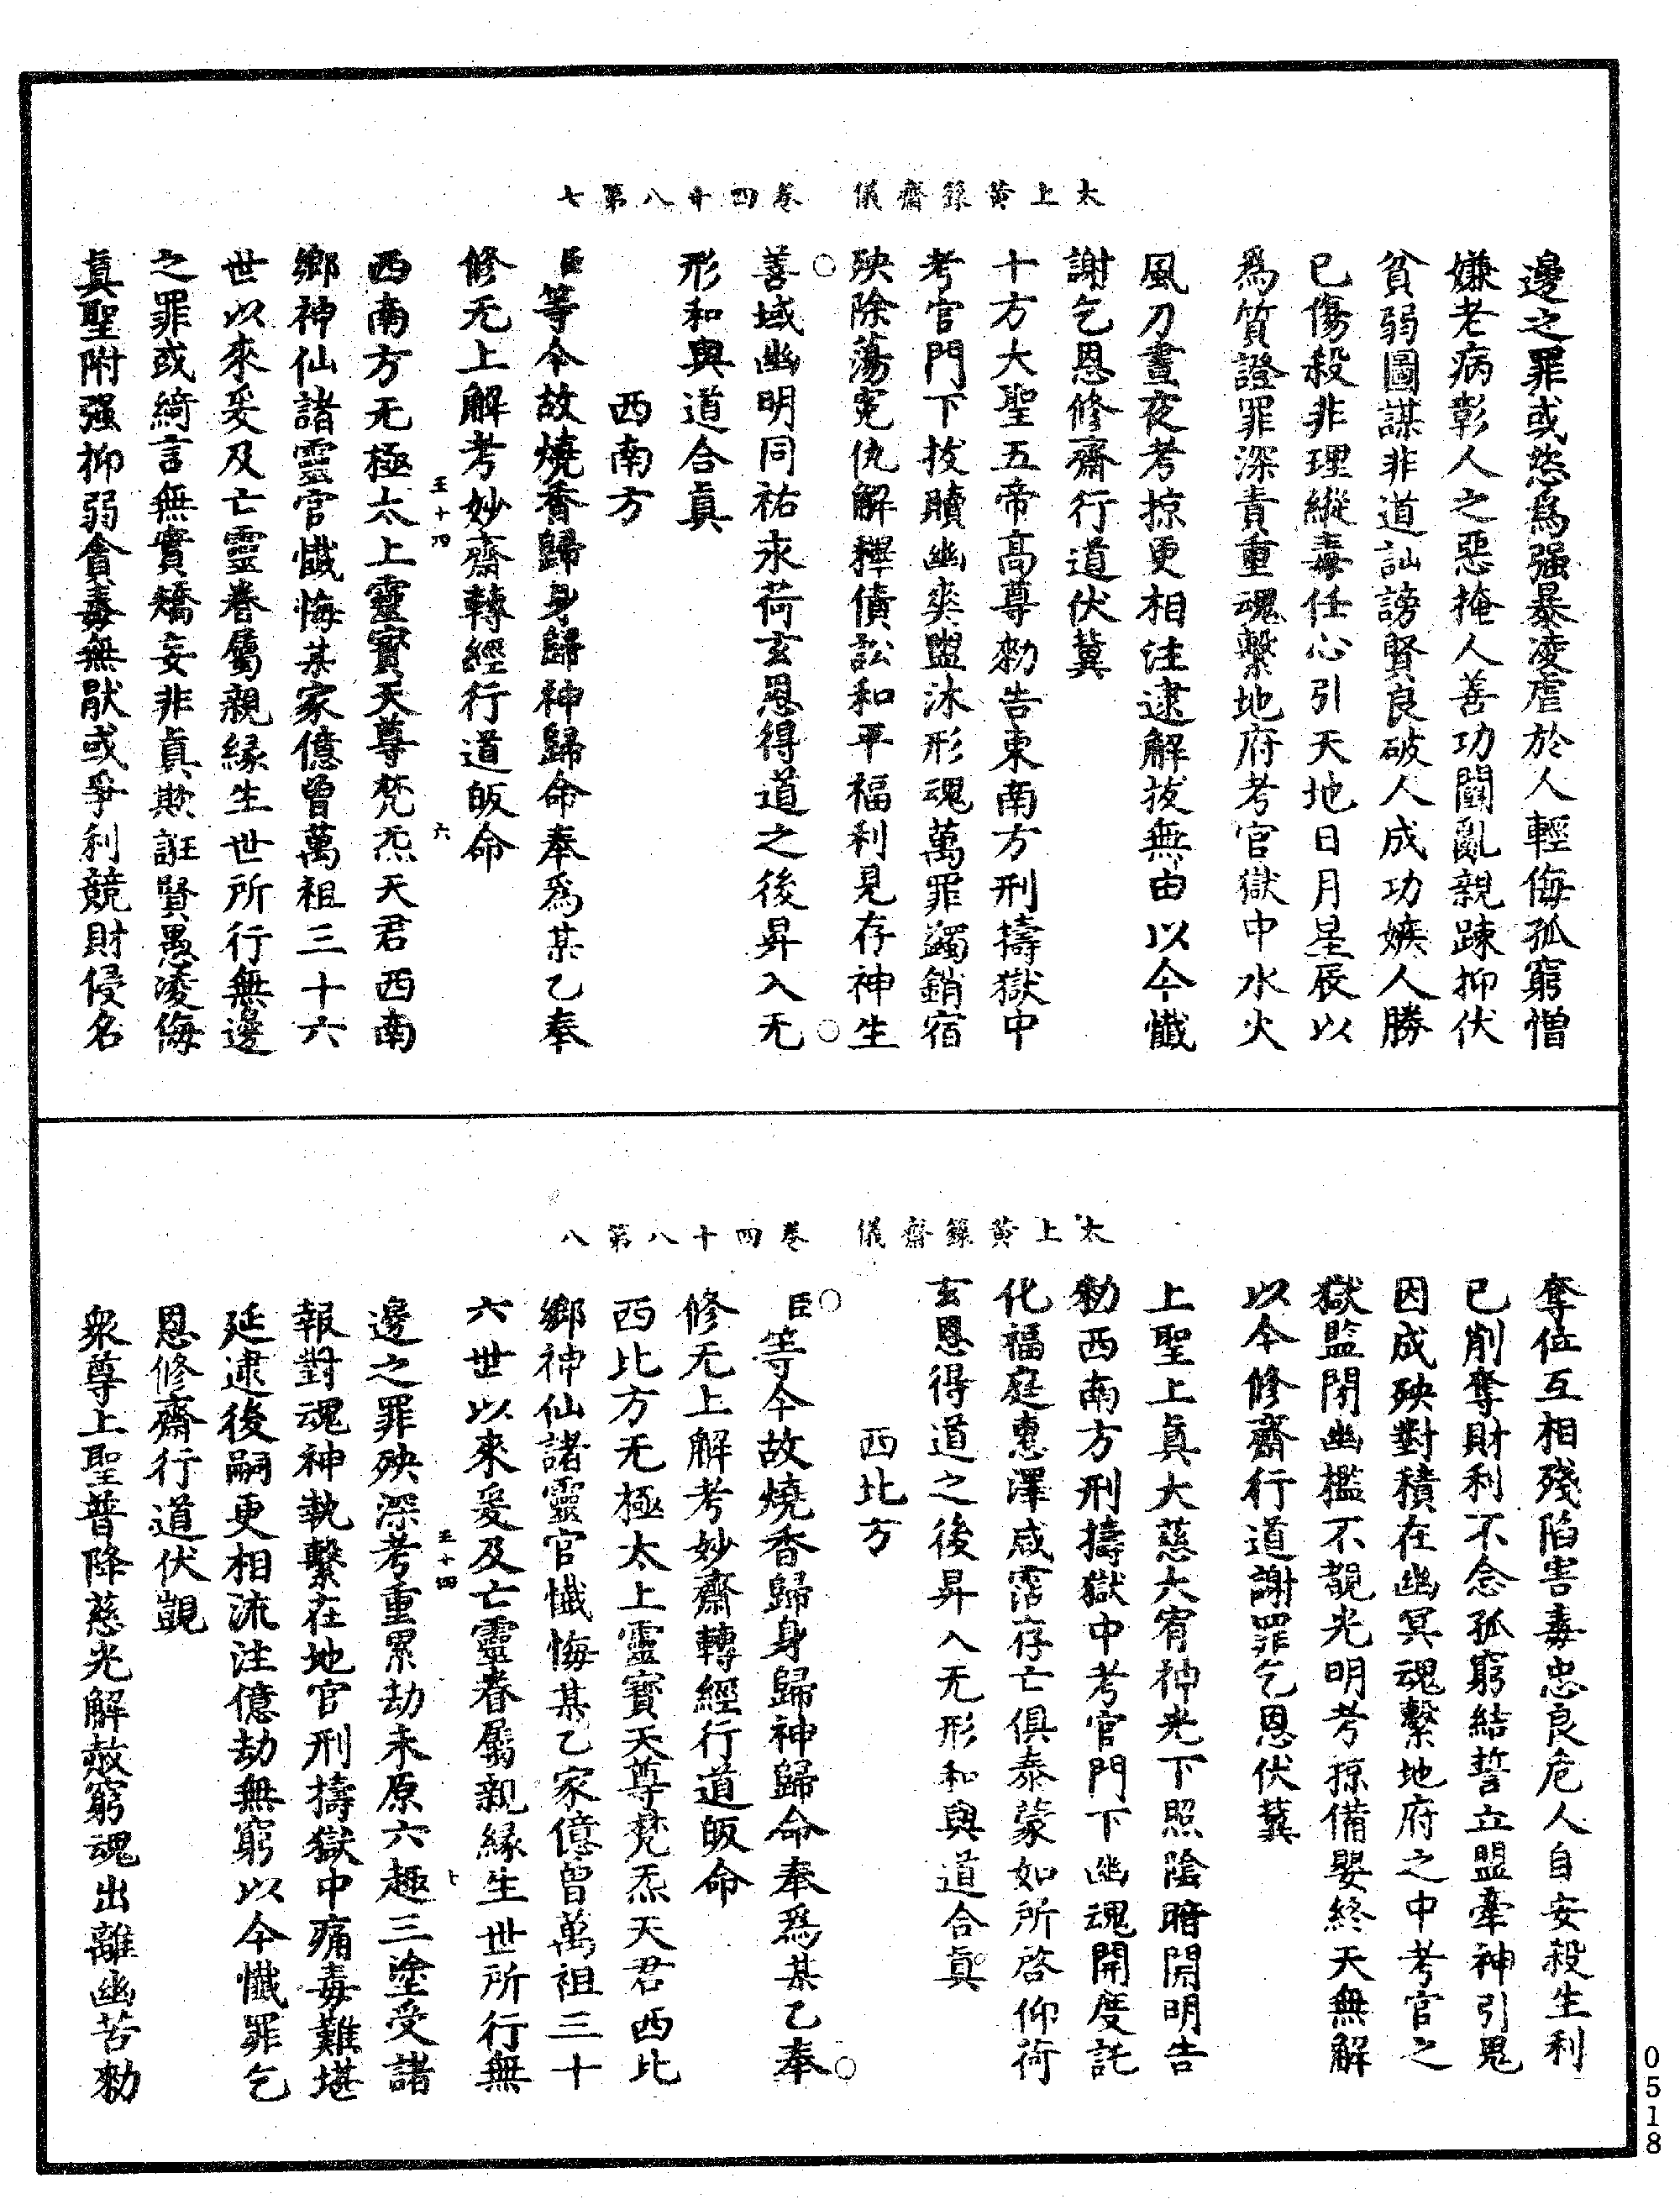 太上黃籙齋儀　卷四十八第七
邊之罪或恣爲强暴凌虐於人輕侮孤窮憎
嫌老病彰人之惡掩人善功鬪亂親踈抑伏
貧弱圖謀非道訕謗賢良破人成功嫉人勝
已傷殺非理縱毒任心引天地日月星辰以
爲質證罪深責重魂繫地府考官獄中水火
風刀晝夜考掠更相注逮解拔無由以今懺
謝乞恩修齋行道伏冀
十方大聖五帝高尊勑告東南方刑擣獄中
考官門下拔贖幽爽盥沐形魂萬罪蠲銷宿
殃除蕩寃仇解釋債訟和平福利見存神生
善域幽明同祐永荷玄恩得道之後昇入无
形和與道合眞
西南方
臣等今故燒香歸身歸神歸命奉爲某乙奉
修无上解考妙齋轉經行道皈命
西南方无極太上靈寶天尊梵炁天君西南
鄉神仙諸靈官懺悔某家億曾萬祖三十六
世以來爰及亡靈眷屬親緣生世所行無邊
之罪或綺言無實矯妄非眞欺誑賢愚凌侮
眞聖附强抑弱貪毒無厭或爭利競財侵名
王十四　六
太上黃籙齋儀　卷四十八第八
奪位互相殘陷害毒忠良危人自安殺生利
已削奪財利不念孤窮結誓立盟牽神引鬼
因成殃對積在幽冥魂繫地府之中考官之
獄監閉幽檻不覩光明考掠備嬰終天無解
以今修齋行道謝罪乞恩伏冀
上聖上眞大慈大宥神光下照陰暗開明告
勑西南方刑擣獄中考官門下幽魂開度託
化福庭惠澤咸霑存亡俱泰蒙如所啓仰荷
玄恩得道之後昇入无形和與道合眞
西北方
臣等今故燒香歸身歸神歸命奉爲某乙奉
修无上解考妙齋轉經行道皈命
西北方无極太上靈寶天尊梵炁天君西北
鄉神仙諸靈官懺悔某乙家億曾萬祖三十
六世以來爰及亡靈眷屬親緣生世所行無
邊之罪殃深考重累劫未原六趣三塗受諸
報對魂神執繫在地官刑擣獄中痛毒難堪
延逮後嗣更相流注億劫無窮以今懺罪乞
恩修齋行道伏覬
衆尊上聖普降慈光解赦窮魂出離幽苦勑
王十四　七
0518